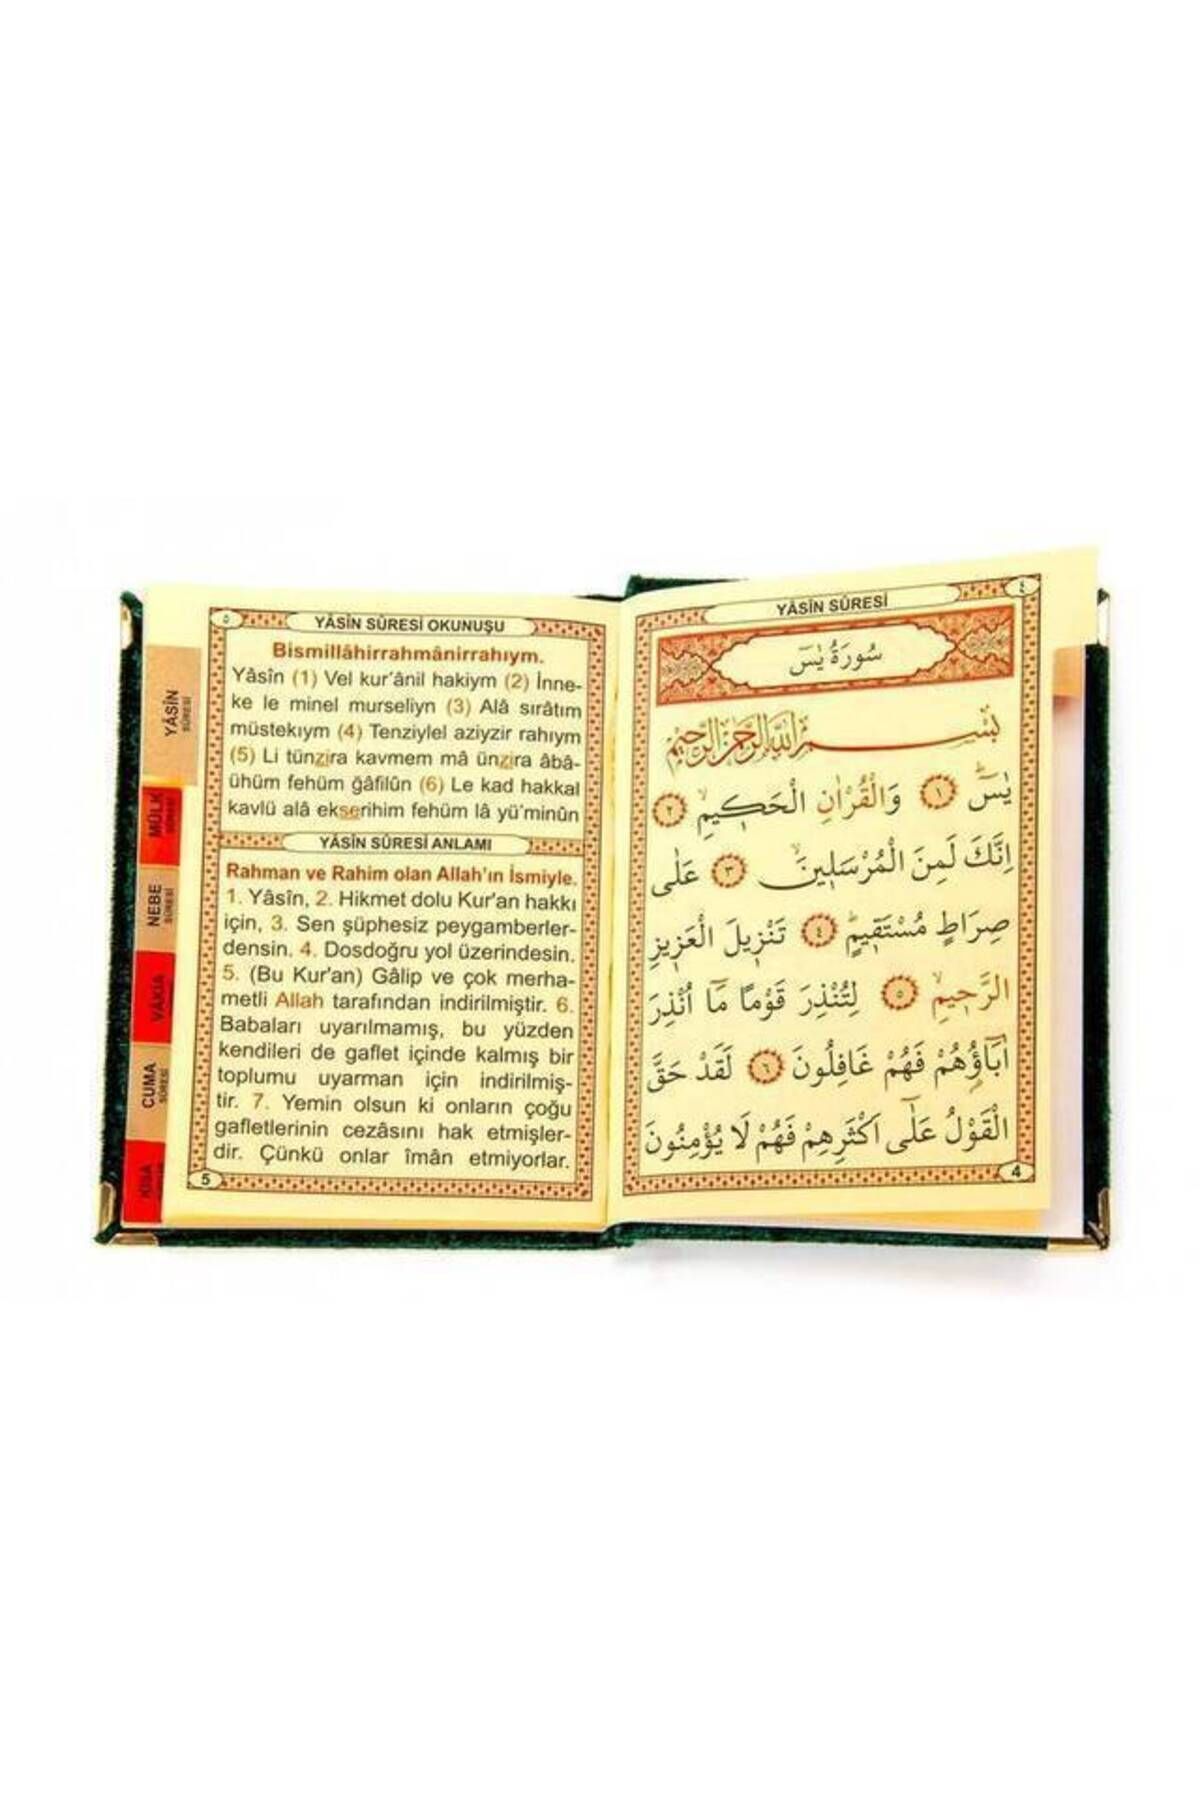 ٥
YÂSÎN SÛRESİ OKUNUŞU
Bismillâhirrahmânirrahıym.
Yâsîn (1) Vel kur'ânil hakiym (2) İnne-
ke le minel murseliyn (3) Alâ sırâtım
müstekıym (4) Tenziylel aziyzir rahıym
(5) Li tünzira kavmem mâ ünzira âbâ-
ühüm fehüm ğâfilûn (6) Le kad hakkal
kavlü alâ ekserihim fehüm lâ yü'minûn
YÂSÎN SÛRESİ ANLAMI
Rahman ve Rahim olan Allah'ın İsmiyle.
1. Yâsîn, 2. Hikmet dolu Kur'an hakkı
için, 3. Sen şüphesiz peygamberler-
densin. 4. Dosdoğru yol üzerindesin.
5. (Bu Kur'an) Gâlip ve çok merha-
metli Allah tarafından indirilmiştir. 6.
Babaları uyarılmamış, bu yüzden
kendileri de gaflet içinde kalmış bir
toplumu uyarman için indirilmiş-
tir. 7. Yemin olsun ki onların çoğu
gafletlerinin cezâsını hak etmişler-
dir. Çünkü onlar îmân etmiyorlar.
5
YÂSÎN
SÛRESİ
MÜLK
SÛRESİ
NEBE
SÛRESİ
VAKIA
CUMA
SÛRESİ
KISA
٤
YÂSÎN SÛRESİ
سُورَةُ يٰسٓ
بِسْمِ اللّٰهِ الرَّحْمٰنِ الرَّحِيمِ
يٰسٓ ١ وَالْقُرْاٰنِ الْحَكٖيمِ ٢
اِنَّكَ لَمِنَ الْمُرْسَلٖينَ ٣ عَلٰى
صِرَاطٍ مُسْتَقٖيمٍ ٤ تَنْزٖيلَ الْعَزٖيزِ
الرَّحٖيمِ ٥ لِتُنْذِرَ قَوْمًا مَٓا اُنْذِرَ
اٰبَٓاؤُ۬هُمْ فَهُمْ غَافِلُونَ ٦ لَقَدْ حَقَّ
الْقَوْلُ عَلٰٓى اَكْثَرِهِمْ فَهُمْ لَا يُؤْمِنُونَ
4